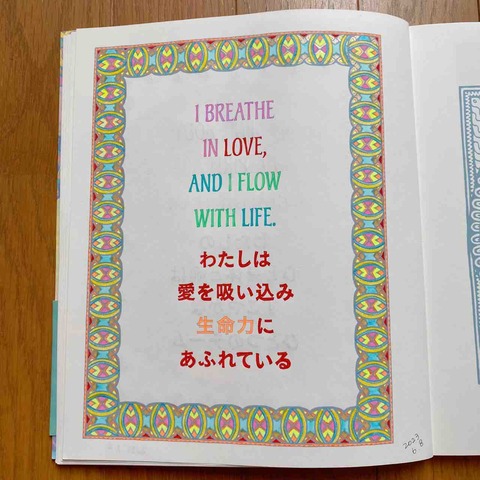 I BREATHE
IN LOVE,
AND I FLOW
WITH LIFE.
わたしは
愛を吸い込み
生命力に
あふれている
2023
6 8